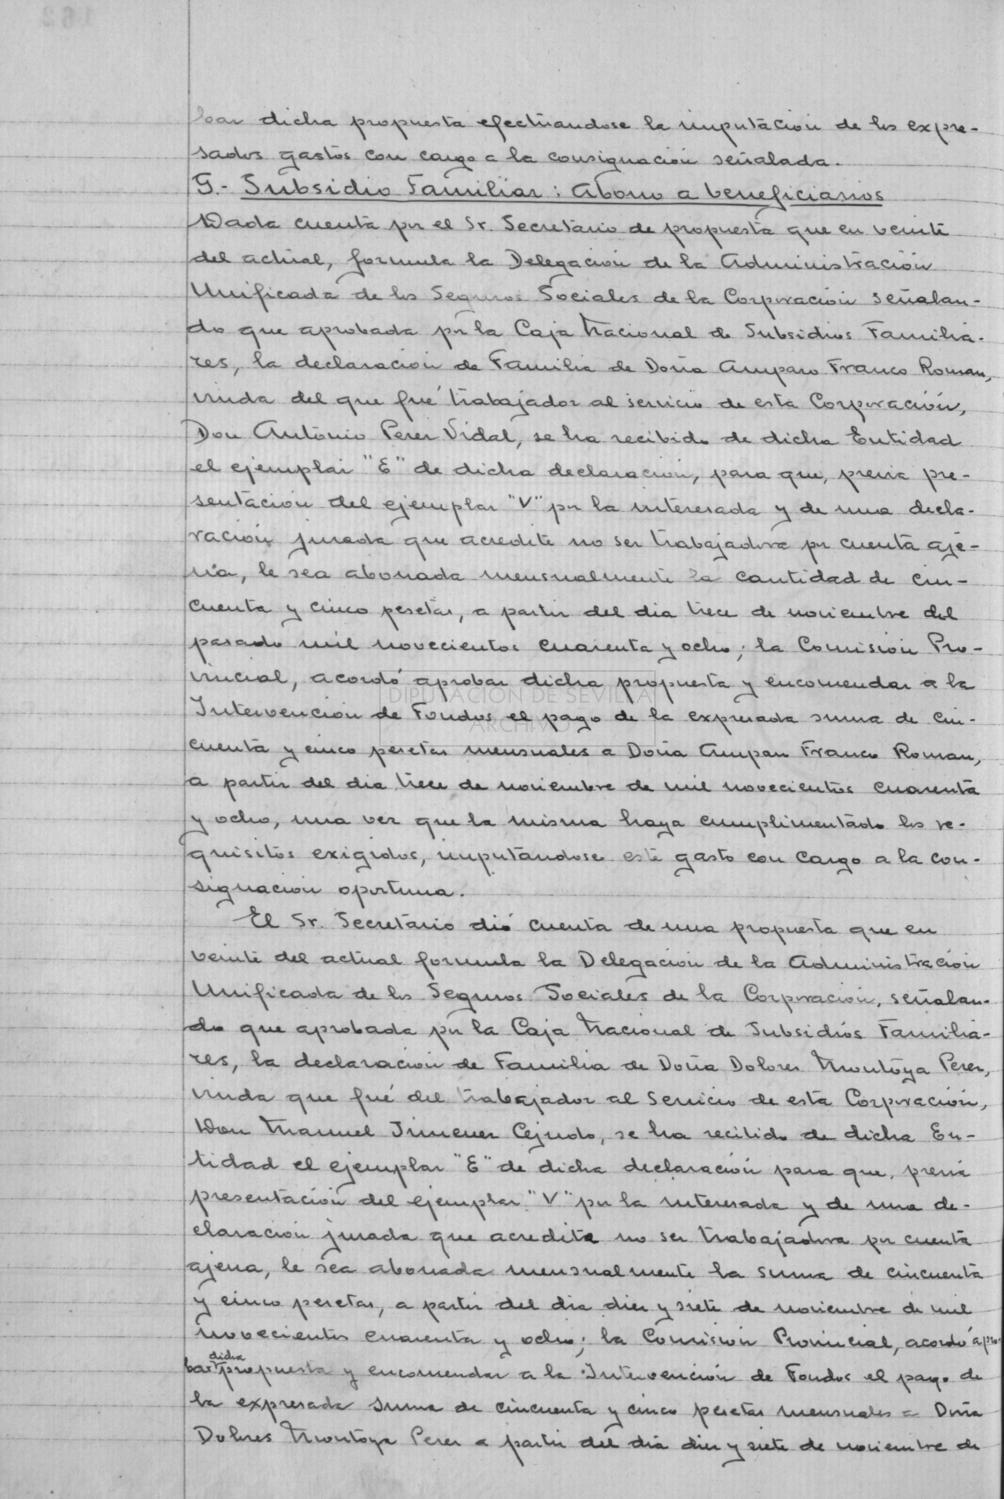 bar dicha propuesta efectuandose la imputación de los expre-
sados gastos con cargo a la consignación señalada.
5.- Subsidio Familiar: Abono a beneficiarios
Dada cuenta por el Sr. Secretario de propuesta que en veinte
del actual, formula la Delegación de la Administración
Unificada de los Seguros Sociales de la Corporación señalan-
do que aprobada por la Caja Nacional de Subsidios Familia-
res, la declaración de Familia de Doña Amparo Franco Roman,
viuda del que fué trabajador al servicio de esta Corporación,
Don Antonio Perez Vidal, se ha recibido de dicha Entidad
el ejemplar "E" de dicha declaración, para que, previa pre-
sentación del ejemplar "V" por la interesada y de una decla-
ración jurada que acredite no ser trabajadora por cuenta aje-
na, le sea abonada mensualmente la cantidad de cin-
cuenta y cinco pesetas, a partir del dia trece de noviembre del
pasado mil novecientos cuarenta y ocho; la Comisión Pro-
vincial, acordó aprobar dicha propuesta y encomendar a la
DIPUTACIÓN DE SEVILLA
ARCHIVO
Intervención de Fondos el pago de la expresada suma de cin-
cuenta y cinco pesetas mensuales a Doña Amparo Franco Roman,
a partir del dia trece de noviembre de mil novecientos cuarenta
y ocho, una vez que la misma haya cumplimentado los re-
quisitos exigidos, imputandose este gasto con cargo a la con-
signación oportuna.
El Sr. Secretario dió cuenta de una propuesta que en
veinte del actual formula la Delegación de la Administración
Unificada de los Seguros Sociales de la Corporación, señalan-
do que aprobada por la Caja Nacional de Subsidios Familia-
res, la declaración de Familia de Doña Dolores Montoya Perez,
viuda que fué del trabajador al servicio de esta Corporación,
Don Manuel Jimenez Cejudo, se ha recibido de dicha En-
tidad el ejemplar "E" de dicha declaración para que, previa
presentación del ejemplar "V" por la interesada y de una de-
claración jurada que acredita no ser trabajadora por cuenta
ajena, le sea abonada mensualmente la suma de cincuenta
y cinco pesetas, a partir del dia diez y siete de noviembre de mil
novecientos cuarenta y ocho; la Comisión Provincial, acordó apro-
bar dicha propuesta y encomendar a la Intervención de Fondos el pago de
la expresada suma de cincuenta y cinco pesetas mensuales a Doña
Dolores Montoya Perez a partir del dia diez y siete de noviembre de